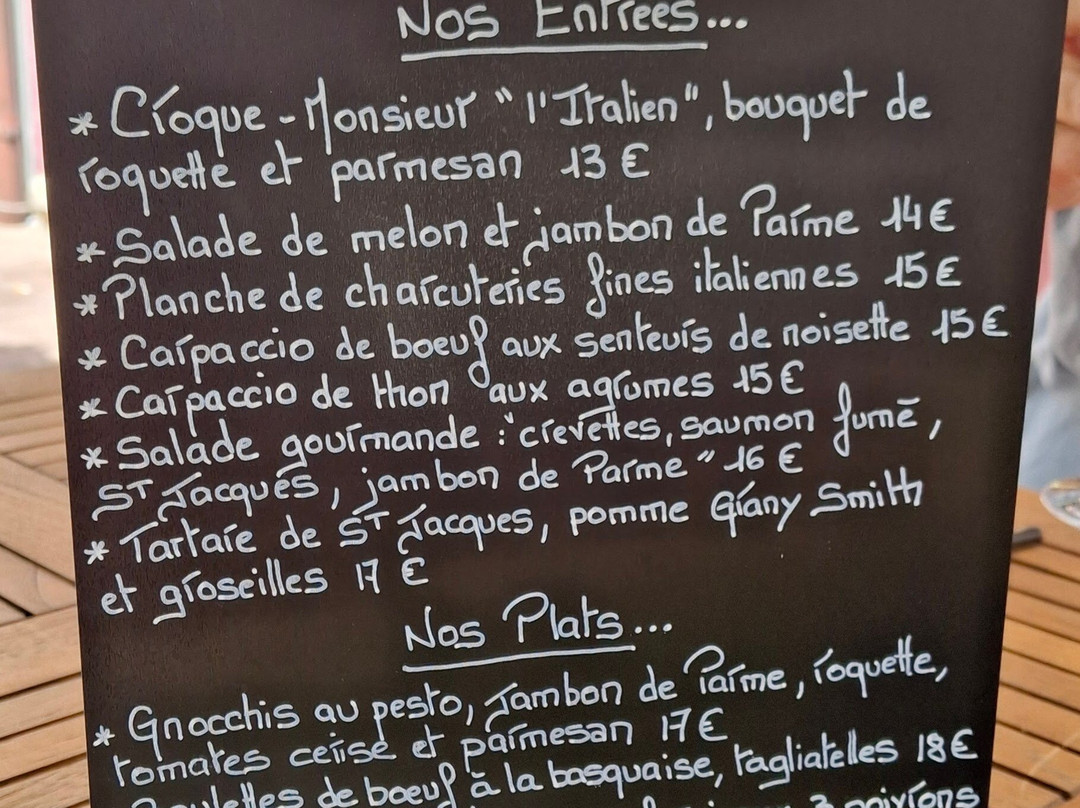 Nos Entrées...
* Croque-Monsieur "l'Italien", bouquet de
roquette et parmesan 13 €
* Salade de melon et jambon de Parme 14 €
* Planche de charcuteries fines italiennes 15 €
* Carpaccio de boeuf aux senteurs de noisette 15 €
* Carpaccio de thon aux agrumes 15 €
* Salade gourmande : "crevettes, saumon fumé,
ST Jacques, jambon de Parme" 16 €
* Tartare de ST Jacques, pomme Grany Smith
et groseilles 17 €
Nos Plats...
* Gnocchis au pesto, jambon de Parme, roquette,
tomates cerise et parmesan 17 €
de boeuf à la basquaise, tagliatelles 18 €
3 poivrons